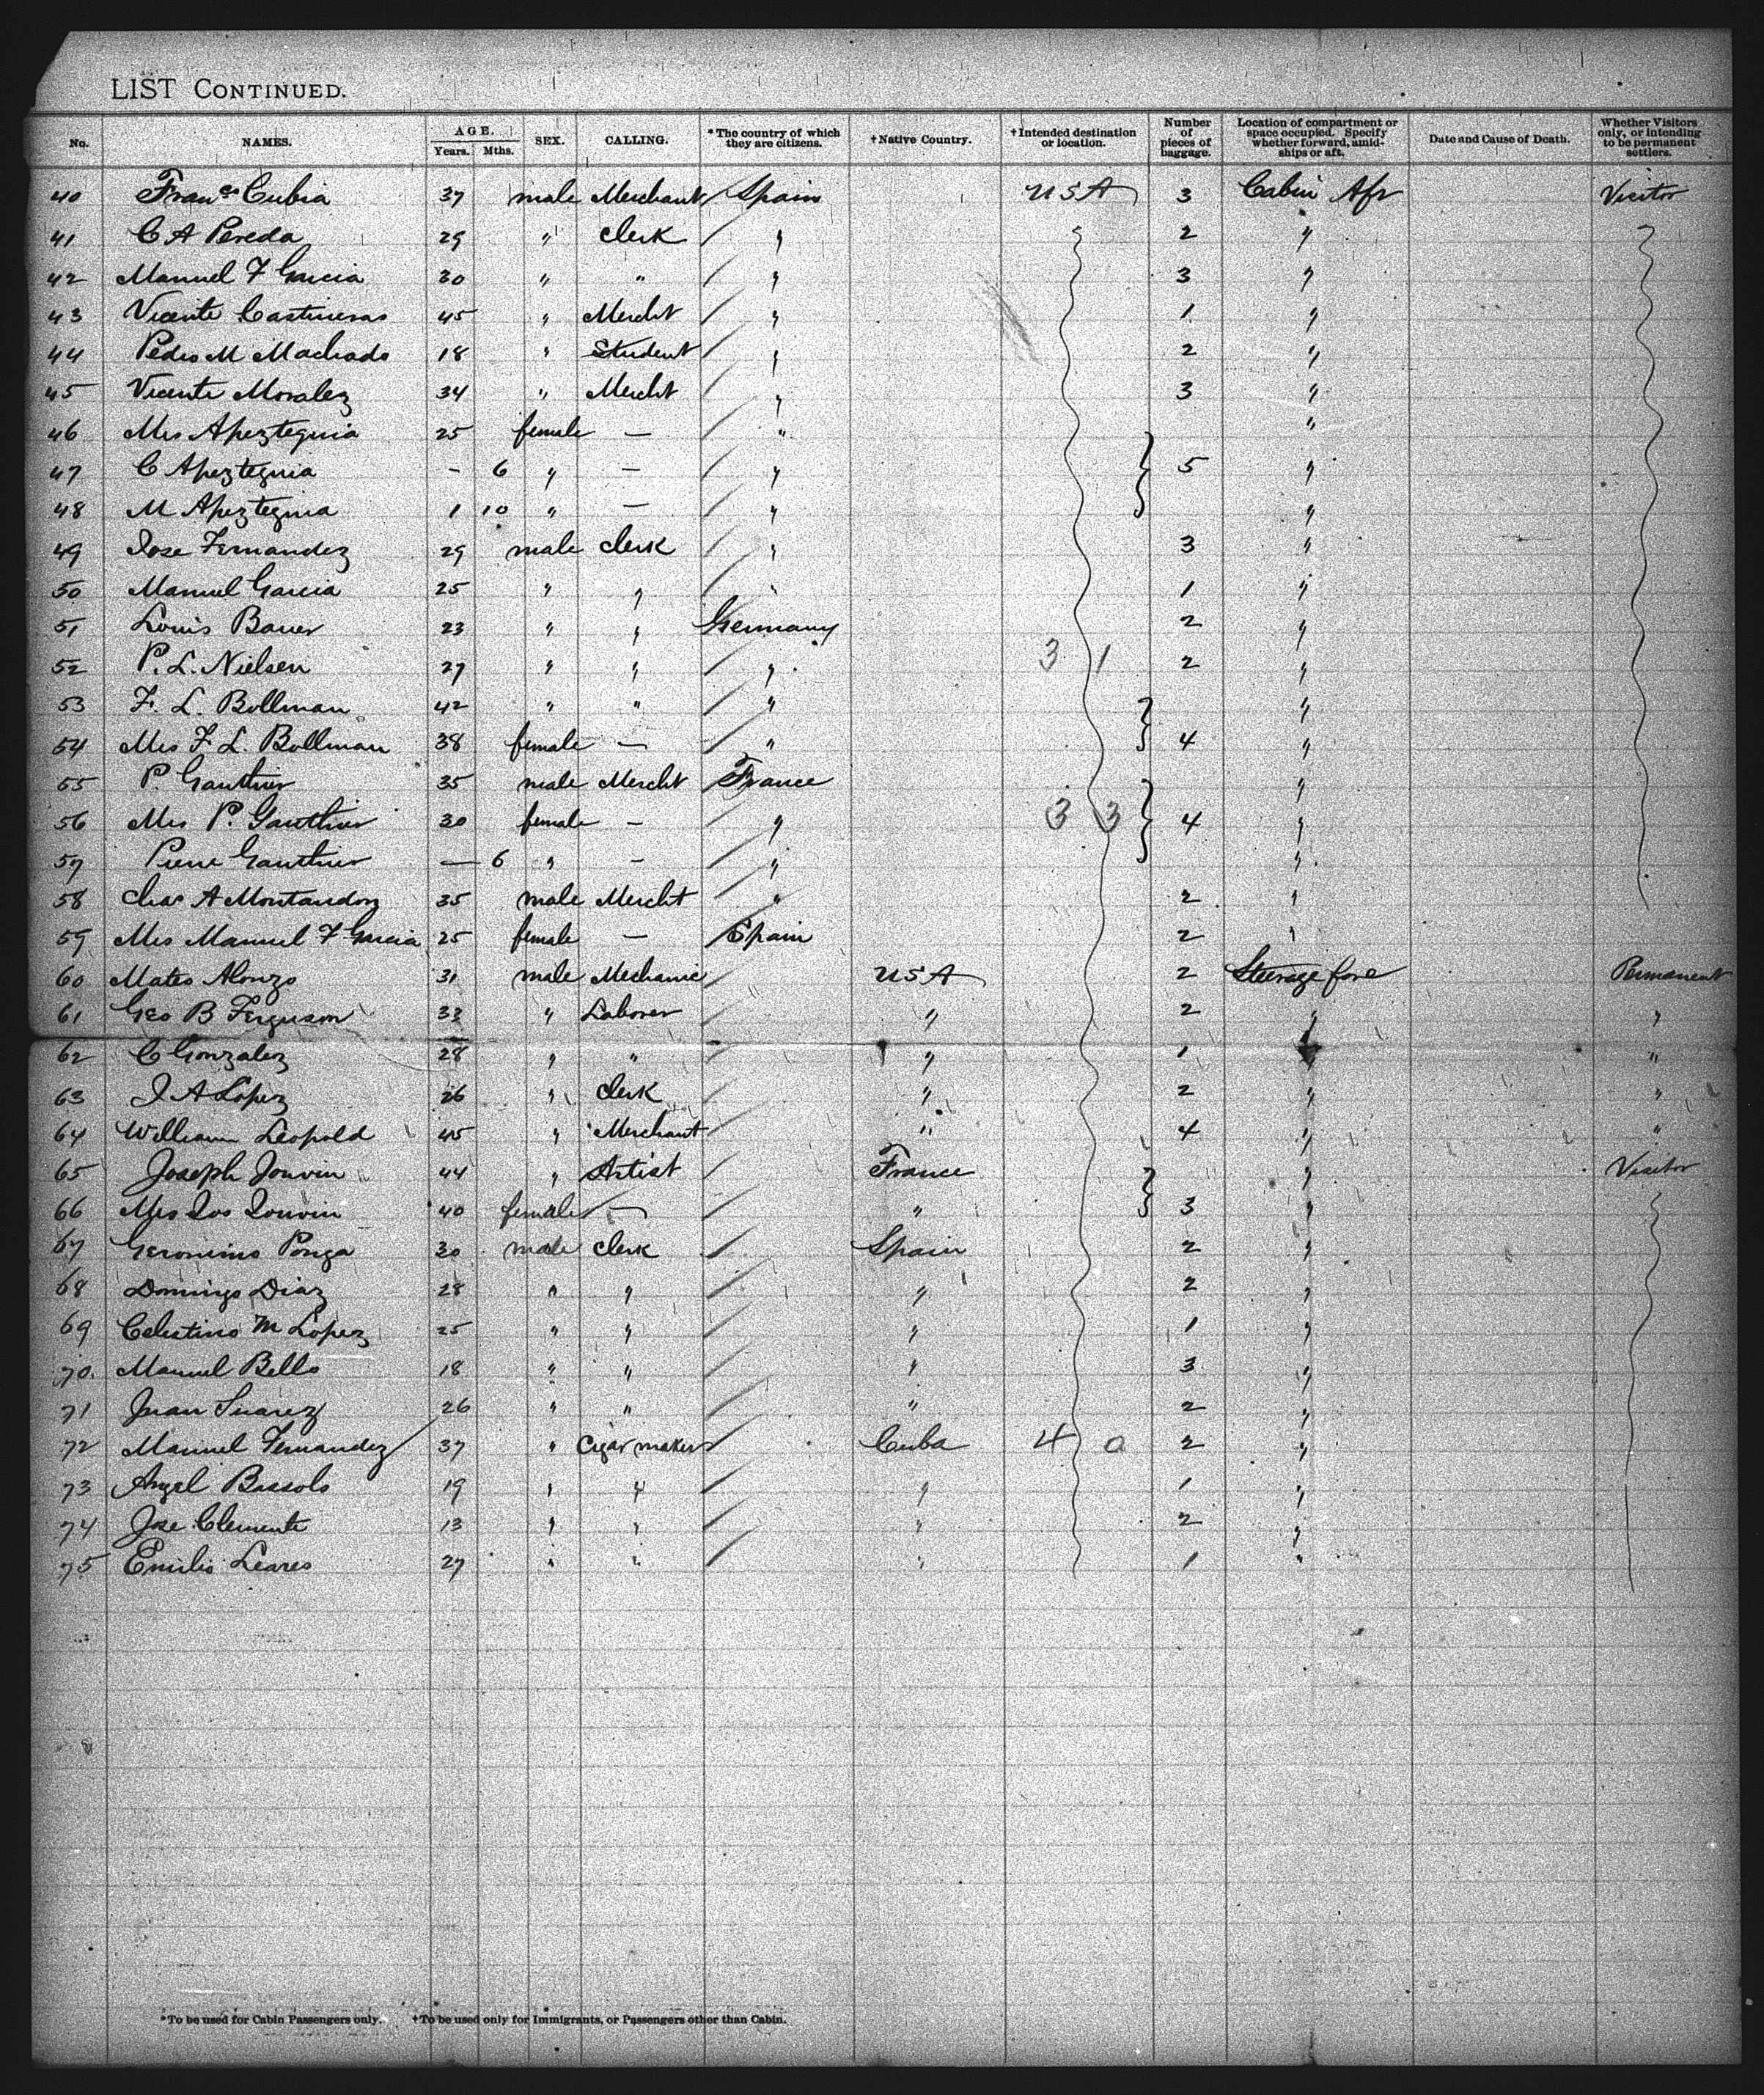 LIST CONTINUED.
No. NAMES. AGE. Years. Mths. SEX. CALLING. *The country of which they are citizens. †Native Country. †Intended destination or location. Number of pieces of baggage. Location of compartment or space occupied. Specify whether forward, amidships or aft. Date and Cause of Death. Whether Visitors only, or intending to be permanent settlers.
40 Franco Cubia 37 male Merchant Spain USA 3 Cabin Aft Visitor
41 C A Pereda 29 " Clerk " 2 "
42 Manuel F Garcia 30 " " " 3 "
43 Vicente Castineras 45 " Mercht " 1 "
44 Pedro M Machado 18 " Student " 2 "
45 Vicente Moralez 34 " Mercht " 3 "
46 Mrs Apeztequia 25 female — " "
47 C Apeztequia - 6 " — " 5 "
48 M Apeztequia 1 10 " — " "
49 Jose Fernandez 29 male Clerk " 3 "
50 Manuel Garcia 25 " " " 1 "
51 Louis Bauer 23 " " Germany 2 "
52 P. L. Nielsen 27 " " " 3 1 2 "
53 F. L. Bollman 42 " " " "
54 Mrs F L. Bollman 38 female — " 4 "
55 P. Gauthier 35 male Mercht France "
56 Mrs P. Gauthier 30 female - " 3 3 4 "
57 Pierre Gauthier — 6 " - " "
58 Chas A Montandon 35 male Mercht " 2 "
59 Mrs Manuel F Garcia 25 female — Spain 2 "
60 Mateo Alonzo 31 male Mechanic USA 2 Steerage fore Permanent
61 Geo B Ferguson 33 " Laborer " 2 " "
62 C Gonzalez 28 " " " 1 " "
63 J A Lopez 26 " Clerk " 2 " "
64 William Leopold 45 " Merchant " 4 " "
65 Joseph Jouvin 44 " Artist France " Visitor
66 Mrs Jos Jouvin 40 female — " 3 "
67 Geronimo Ponga 30 male Clerk Spain 2 "
68 Domingo Diaz 28 " " " 2 "
69 Celestino M Lopez 25 " " " 1 "
70 Manuel Bello 18 " " " 3 "
71 Juan Suarez 26 " " " 2 "
72 Manuel Fernandez 37 " Cigar maker Cuba 4 0 2 "
73 Angel Bassols 19 " " " 1 "
74 Jose Clemente 13 " " " 2 "
75 Emilio Leares 27 " " " 1 "
*To be used for Cabin Passengers only. †To be used only for Immigrants, or Passengers other than Cabin.